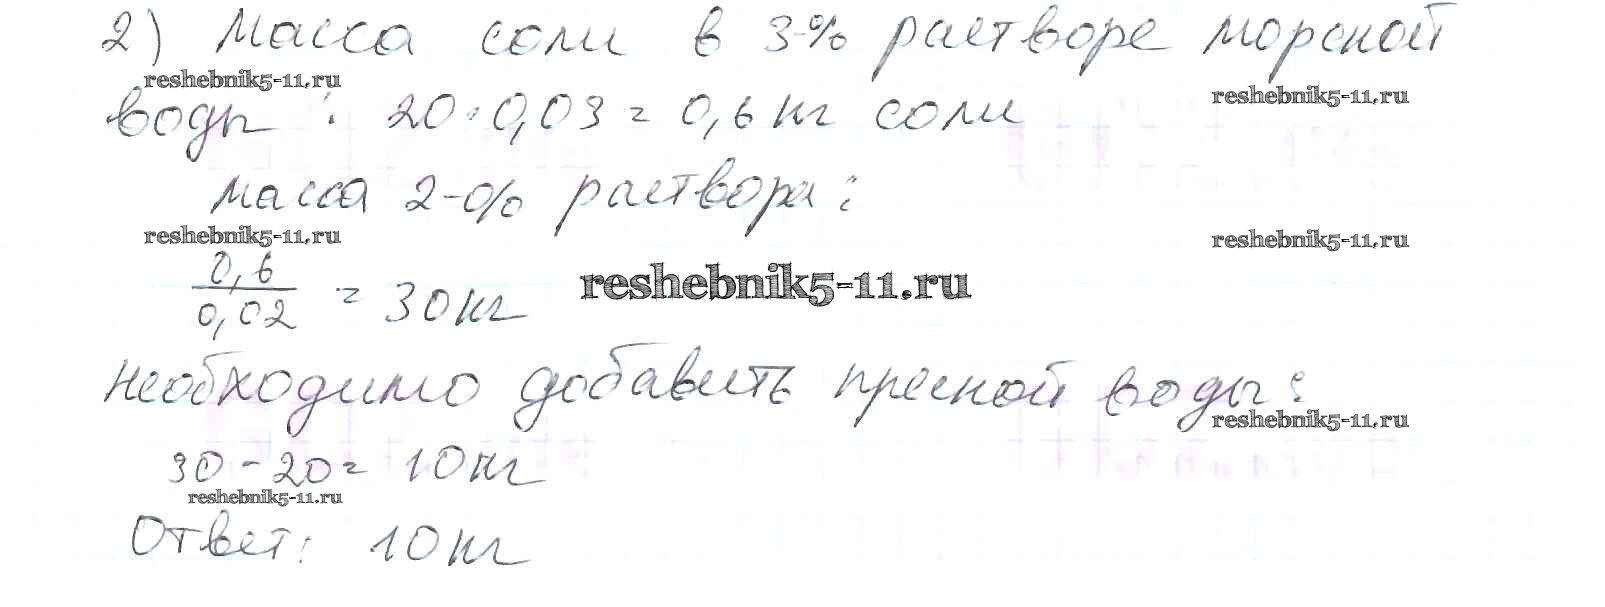 2) Масса соли в 3-% растворе морской
reshebnik5-11.ru
reshebnik5-11.ru
воды: 20·0,03=0,6 кг соли
масса 2-% раствора:
reshebnik5-11.ru
reshebnik5-11.ru
0,6
reshebnik5-11.ru
0,02 = 30 кг
необходимо добавить пресной воды:
reshebnik5-11.ru
30-20=10 кг
reshebnik5-11.ru
Ответ: 10 кг